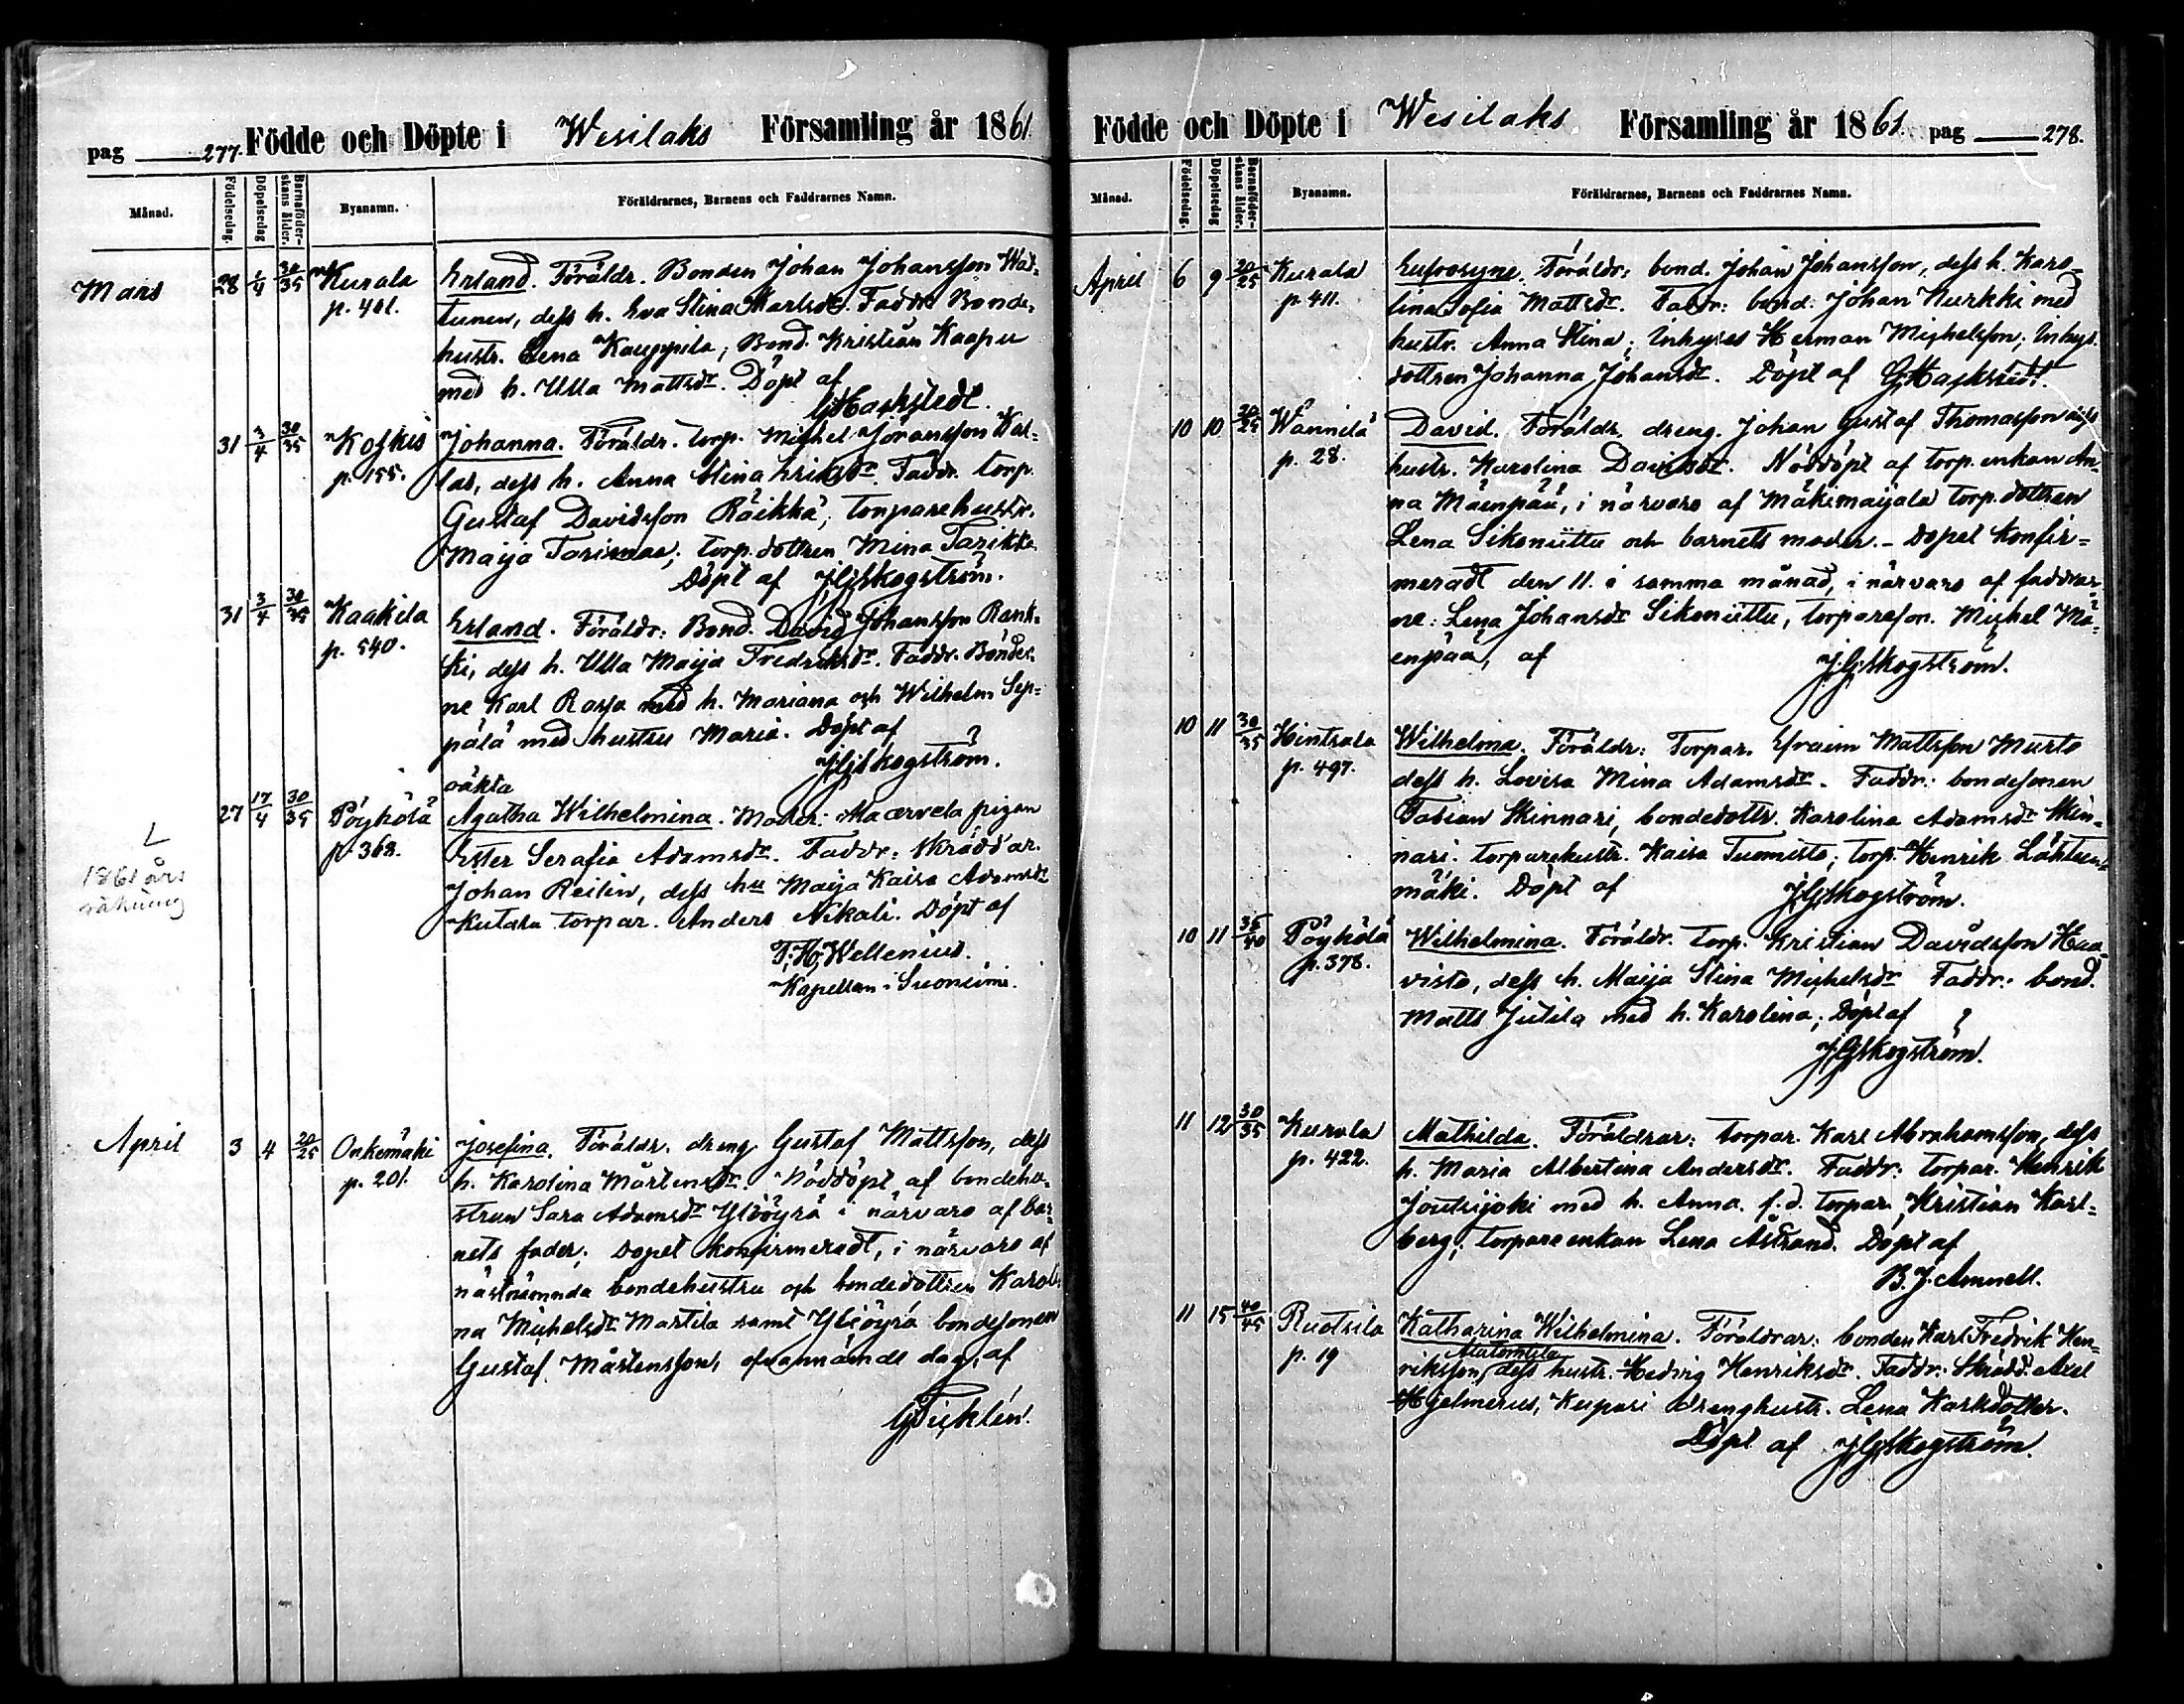 pag 277. Födde och Döpte i Wesilaks Församling år 1861.
Månad. Födelsedag. Döpelsedag Barnaföderskans ålder. Byanamn. Föräldrarnes, Barnens och Faddrarnes Namn.
Mars 28 1/4 30/35 Kurala Erland. Föräldr. Bonden Johan Johansson Wat-
p. 401. tunen, dess h. Eva Stina Karlsdr. Faddr. Bonde-
hustr. Lena Kauppila; Bond. Kristian Kaapu
med h. Ulla Mattsdr. Döpt af
G Hackstedt.
31 3/4 30/35 Koskis Johanna. Föräldr. torp. Michel Jöransson Wal-
p. 155. las, dess h. Anna Stina Eriksdr. Faddr. torp.
Gustaf Davidsson Räikkä; torparehustr.
Maija Torimaa; torp. dottren Mina Tarikka
Döpt af J G Skogström.
31 3/4 30/35 Kaakila Erland. Föräldr: Bond. David Johansson Rank-
p. 540. ki, dess h. Ulla Maija Fredriksdr. Faddr. Bönder-
ne Karl Rassa med h. Mariana och Wilhelm Sep-
pälä med hustru Maria. Döpt af
J G Skogström.
oäkta
27 17/4 30/35 Pöyhölä Agatha Wilhelmina. Moder: Maarvela pigan
p. 368. Ester Serafia Adamsdr. Faddr: Skräddar.
L
1861 års
räkning
Johan Reilin, dess hu Maija Kaisa Adamsdr
Kutala torpar. Anders Nikali. Döpt af
F. H. Wellenius.
Kapellan i Suoniemi.
April 3 4 20/25 Onkemäki Josefina. Föräldr. dreng Gustaf Mattsson, dess
p. 201. h. Karolina Mårtensdr. Nöddöpt af bondehu-
strun Sara Adamsdr Yliöyrä i närvaro af bar-
nets fader; Dopet konfirmeradt, i närvaro af
nästnämnda bondehustru och bondedottren Karoli-
na Michelsdr Martila samt Yliöyrä bondesonen
Gustaf Mårtensson, ofvannämde dag, af
G Ticklén.
Födde och Döpte i Wesilaks Församling år 1861. pag 278.
Månad. Födelsedag. Döpelsedag Barnaföderskans ålder. Byanamn. Föräldrarnes, Barnens och Faddrarnes Namn.
April 6 9 20/25 Kurala Eufrosyne. Föräldr: bond. Johan Johansson, dess h. Karo-
p. 411. lina Sofia Mattsdr. Faddr: bond. Johan Kurkki med
hustr. Anna Stina; Inhyses Herman Michelsson; Inhys.
dottren Johanna Johansdr. Döpt af G Hackstedt.
10 10 20/25 Wännilä David. Föräldr. dreng. Johan Gustaf Thomasson dess
p. 28. hustr. Karolina Davidsdr. Nöddöpt af torp. enkan An-
na Mäenpää, i närvaro af Mäkimaijala torp. dottren
Lena Sikoniittu och barnets moder. - Dopet konfir-
meradt den 11. i samma månad, i närvaro af faddrar-
ne: Lena Johansdr Sikoniittu, torpareson. Michel Mä-
enpää, af J G Skogström.
10 11 30/35 Hintsala Wilhelma. Föräldr: Torpar. Efraim Mattsson Musto
p. 497. dess h. Lovisa Mina Adamsdr. Faddr: bondesonen
Fabian Skinnari, bondedottr. Karolina Adamsdr Skin-
nari. torparehustr. Kaisa Tuomisto; torp. Henrik Lähteen-
mäki. Döpt af J G Skogström.
10 11 35/40 Pöyhölä Wilhelmina. Föräldr. torp. Kristian Davidsson Haa-
p. 378. visto, dess h. Maija Stina Michelsdr Faddr: bond.
Matts Jutila med h. Karolina; Döpt af
J G Skogström.
11 12 30/35 Kurala Mathilda. Föräldrar: torpar. Karl Abrahamsson, dess
p. 422. h. Maria Albertina Andersdr. Faddr: torpar. Henrik
Joutsijoki med h. Anna. f.d. torpar. Kristian Karl-
berg; torpareenkan Lena Åstrand. Döpt af
B. J. Amnell.
11 15 40/45 Ruotsila Katharina Wilhelmina. Föräldrar: bonden Karl Fredrik Hen-
p. 19 riksson Alatomtila dess hustr. Hedvig Henriksdr. Faddr: Skrädd. Axel
Hjelmerus, Kupari drenghustr. Lena Karlsdotter.
Döpt af J G Skogström.